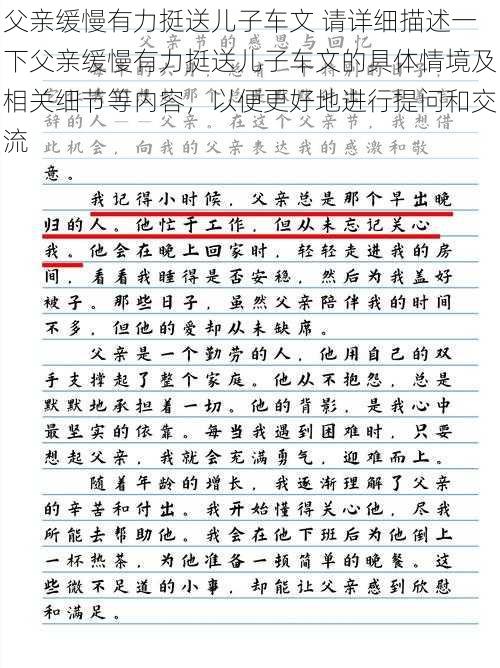 父亲缓慢有力挺送儿子车文 请详细描述一
父亲节的感恩与回忆
下父亲缓慢有力挺送儿子车文的具体情境及
相关细节等内容，以便更好地进行提问和交
辞的人——父亲。在这个父亲节，我想借
流
此机会，向我的父亲表达我的感激和敬
意。
我记得小时候，父亲总是那个早出晚
归的人。他忙于工作，但从未忘记关心
我。他会在晚上回家时，轻轻走进我的房
间，看看我睡得是否安稳，然后为我盖好
被子。那些日子，虽然父亲陪伴我的时间
不多，但他的爱却从未缺席。
父亲是一个勤劳的人，他用自己的双
手支撑起了整个家庭。他从不抱怨，总是
默默地承担着一切。他的背影，是我心中
最坚实的依靠。每当我遇到困难时，只要
想起父亲，我就会充满勇气，迎难而上。
随着年龄的增长，我逐渐理解了父亲
的辛苦和付出。我开始懂得关心他，尽我
所能去帮助他。我会在他下班后为他倒上
一杯热茶，为他准备一顿简单的晚餐。这
些微不足道的小事，却能让父亲感到欣慰
和满足。